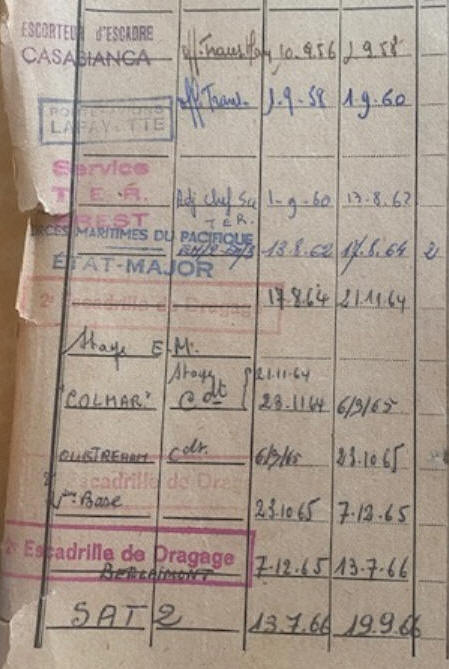 ESCORTEUR D'ESCADRE
CASABIANCA off. Trans 10.9.56 1.9.58
PORTE-AVIONS
LAFAYETTE off Trans. 1.9.58 1.9.60
Service
T.E.R. Adj chef Sce 1-9-60 13.8.62
BREST T.E.R.
FORCES MARITIMES DU PACIFIQUE
ÉTAT-MAJOR 13.8.62 17.8.64 2
2e Escadrille de Dragage 17.8.64 21.11.64
Stage E.M.
Stage 21.11.64
"COLMAR" Cdt 23.11.64 6/3/65
OUISTREHAM Cdt. 6/3/65 23.10.65
2e Escadrille de Dragage
Base 23.10.65 7-12.65
2e Escadrille de Dragage
BERLAIMONT 7-12.65 13.7.66
SAT 2 13.7.66 19.9.66